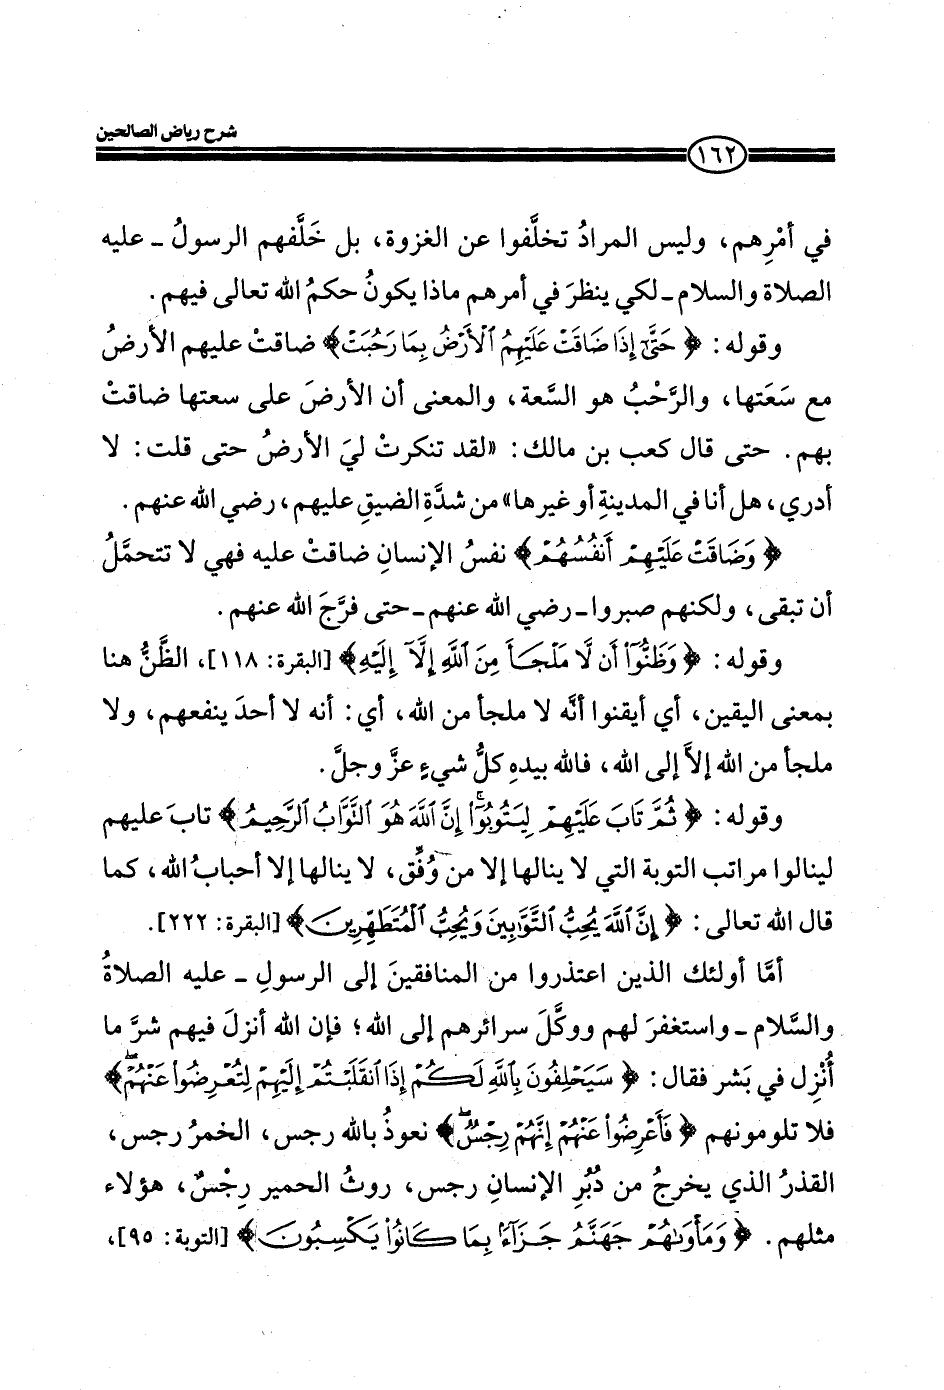 شرح رياض الصالحين
١٦٢
في أمْرِهم، وليس المرادُ تخلَّفوا عن الغزوة، بل خَلَّفهم الرسولُ ـ عليه
الصلاة والسلام ـ لكي ينظرَ في أمرهم ماذا يكونُ حكمُ الله تعالى فيهم.
وقوله: ﴿حَتَّىٰٓ إِذَا ضَاقَتْ عَلَيْهِمُ ٱلْأَرْضُ بِمَا رَحُبَتْ﴾ ضاقتْ عليهم الأرضُ
مع سَعَتها، والرَّحْبُ هو السَّعة، والمعنى أن الأرضَ على سعتها ضاقتْ
بهم. حتى قال كعب بن مالك: «لقد تنكرتْ ليَ الأرضُ حتى قلت: لا
أدري، هل أنا في المدينةِ أو غيرها» من شدَّةِ الضيقِ عليهم، رضي الله عنهم.
﴿وَضَاقَتْ عَلَيْهِمْ أَنفُسُهُمْ﴾ نفسُ الإنسانِ ضاقتْ عليه فهي لا تتحمَّلُ
أن تبقى، ولكنهم صبروا ـ رضي الله عنهم ـ حتى فرَّجَ الله عنهم.
وقوله: ﴿وَظَنُّوٓا۟ أَن لَّا مَلْجَأَ مِنَ ٱللَّهِ إِلَّآ إِلَيْهِ﴾ [البقرة: ١١٨]، الظَّنُّ هنا
بمعنى اليقين، أي أيقنوا أنَّه لا ملجأ من الله، أي: أنه لا أحدَ ينفعهم، ولا
ملجأ من الله إلاَّ إلى الله، فالله بيدهِ كلُّ شيءٍ عزَّ وجلَّ.
وقوله: ﴿ثُمَّ تَابَ عَلَيْهِمْ لِيَتُوبُوٓا۟ ۚ إِنَّ ٱللَّهَ هُوَ ٱلتَّوَّابُ ٱلرَّحِيمُ﴾ تابَ عليهم
لينالوا مراتب التوبة التي لا ينالها إلا من وُفِّق، لا ينالها إلا أحبابُ الله، كما
قال الله تعالى: ﴿إِنَّ ٱللَّهَ يُحِبُّ ٱلتَّوَّٰبِينَ وَيُحِبُّ ٱلْمُتَطَهِّرِينَ﴾ [البقرة: ٢٢٢].
أمَّا أولئك الذين اعتذروا من المنافقينَ إلى الرسولِ ـ عليه الصلاةُ
والسَّلام ـ واستغفرَ لهم ووكَّلَ سرائرهم إلى الله؛ فإن الله أنزلَ فيهم شرَّ ما
أُنْزِل في بَشر فقال: ﴿سَيَحْلِفُونَ بِٱللَّهِ لَكُمْ إِذَا ٱنقَلَبْتُمْ إِلَيْهِمْ لِتُعْرِضُوا۟ عَنْهُمْ ۖ﴾
فلا تلومونهم ﴿فَأَعْرِضُوا۟ عَنْهُمْ إِنَّهُمْ رِجْسٌ ۖ﴾ نعوذُ بالله رجس، الخمرُ رجس،
القذرُ الذي يخرجُ من دُبُرِ الإنسانِ رجس، روثُ الحمير رِجْسٌ، هؤلاء
مثلهم. ﴿وَمَأْوَىٰهُمْ جَهَنَّمُ جَزَآءًۢ بِمَا كَانُوا۟ يَكْسِبُونَ﴾ [التوبة: ٩٥]،